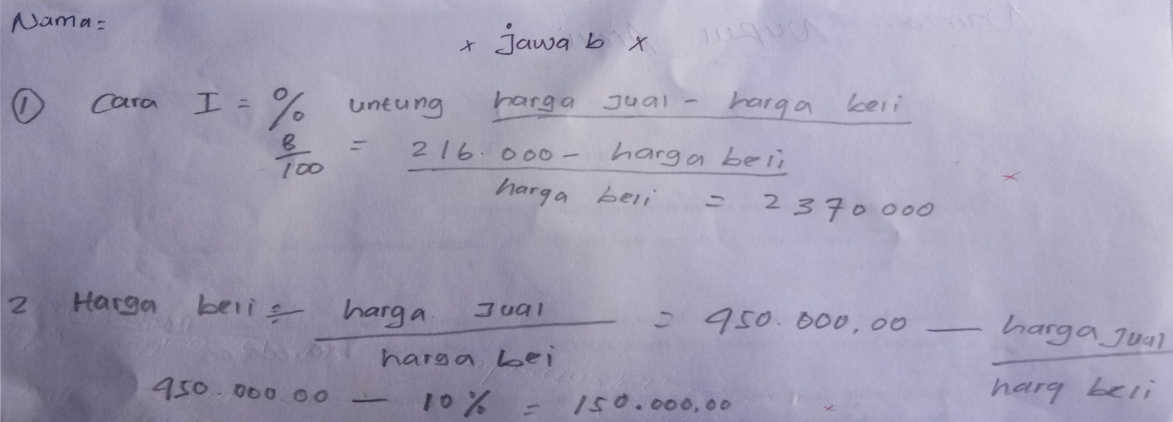 Nama =
x jawab x
① Cara I = % untung harga Jual - harga beli
8/100 = 216.000 - harga beli
harga beli = 2370000
2 Harga beli = harga Jual = 950.000,00 — harga Jual
harga bei harg beli
950.000 00 — 10% = 150.000,00